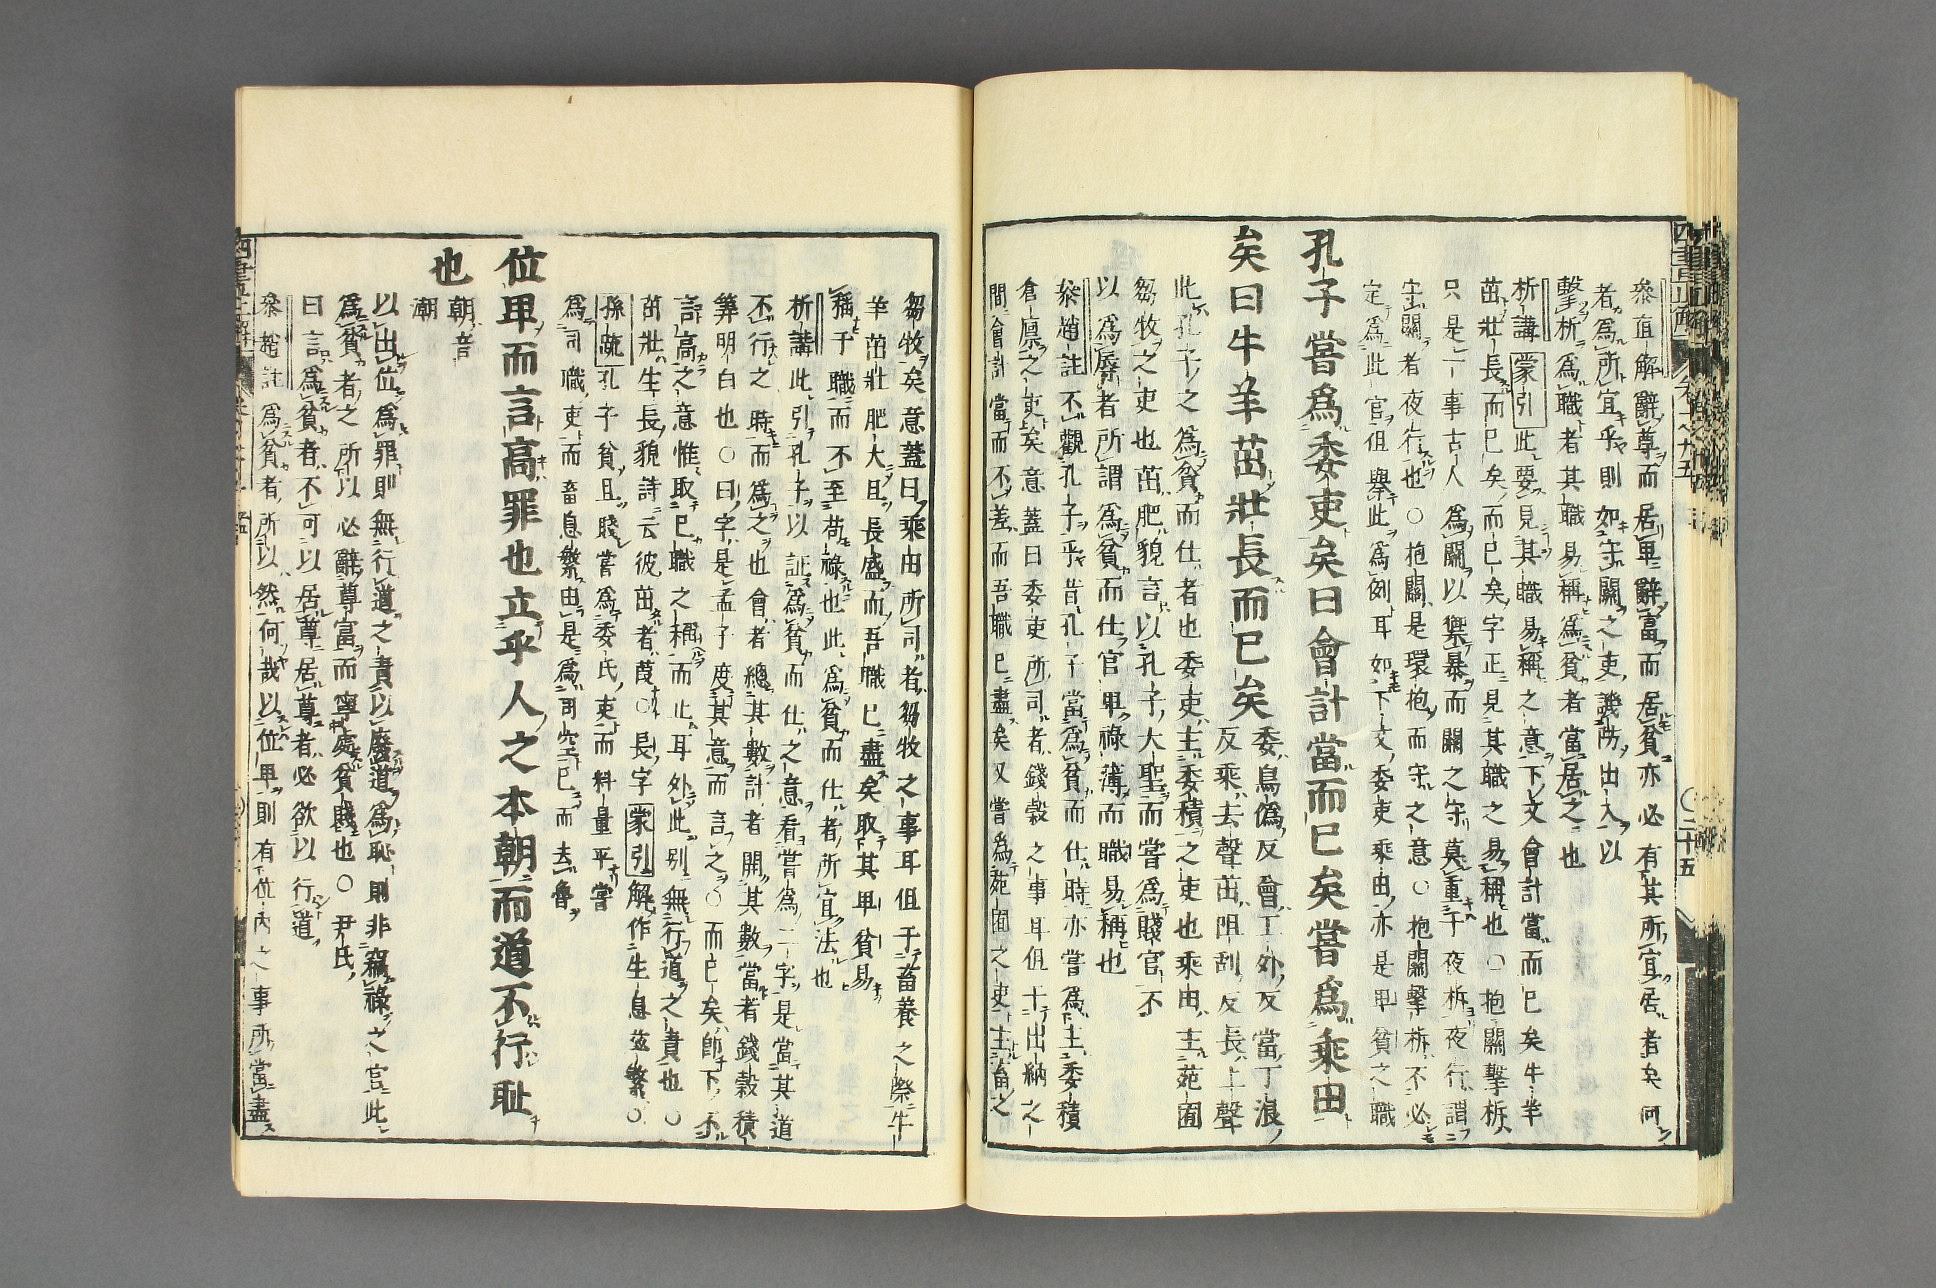 參直解辭尊而居卑辭富而居貧亦必有其所宜居者矣何
者爲所宜乎則如守關之吏譏防出入以
擊柝爲職者其職易稱爲貧者當居之也
析講蒙引此要見其職易稱之意下文會計當而已矣牛羊
茁壯長而已矣而已矣字正見其職之易稱也○抱關擊柝
只是一事古人爲關以禦暴而關之守莫重于夜柝夜行謂
守關者夜行也○抱關是環抱而守之意○抱關擊柝不必
定爲此官但舉此爲例耳如下文委吏乘田亦是卑貧之職
孔子嘗爲委吏矣曰會計當而已矣嘗爲乘田
矣曰牛羊茁壯長而已矣
委烏僞反會工外反當丁浪
反乘去聲茁阻刮反長上聲
此孔子之爲貧而仕者也委吏主委積之吏也乘田主苑囿
芻牧之吏也茁肥貌言以孔子大聖而嘗爲賤官不
以爲辱者所謂爲貧而仕官卑祿薄而職易稱也
參趙註不觀孔子乎昔孔子當爲貧而仕時亦嘗爲主委積
倉廩之吏矣意蓋曰委吏所司者錢穀之事耳但于出納之
間會計當而不差而吾職已盡矣又嘗爲苑囿之吏主畜之
芻牧矣意蓋曰乘田所司者芻牧之事耳但于畜養之際牛
羊茁壯肥大且長盛而吾職已盡矣取其卑貧易
稱于職而不至苟祿也此爲貧而仕者所宜法也
析講此引孔子以証爲貧而仕之意看嘗爲二字是當其道
不行之時而爲之也會者總其數計者開其數當者錢穀積
筭明白也○曰字是孟子度其意而言之○而已矣卽下不
言高之意惟取已職之稱而止耳外此別無行道之責也○
茁壯生長貌詩云彼茁者葭○長字蒙引解作生息茲繁○
孫疏孔子貧且賤嘗爲委氏吏而料量平嘗
爲司職吏而畜息繁由是爲司空已而去魯
位卑而言高罪也立乎人之本朝而道不行耻
也
朝音
潮
以出位爲罪則無行道之責以廢道爲恥則非竊祿之官此
爲貧者之所以必辭尊富而寧處貧賤也○尹氏
曰言爲貧者不可以居尊居尊者必欲以行道
參趙註爲貧者所以然何哉以位卑則有位內之事所當盡